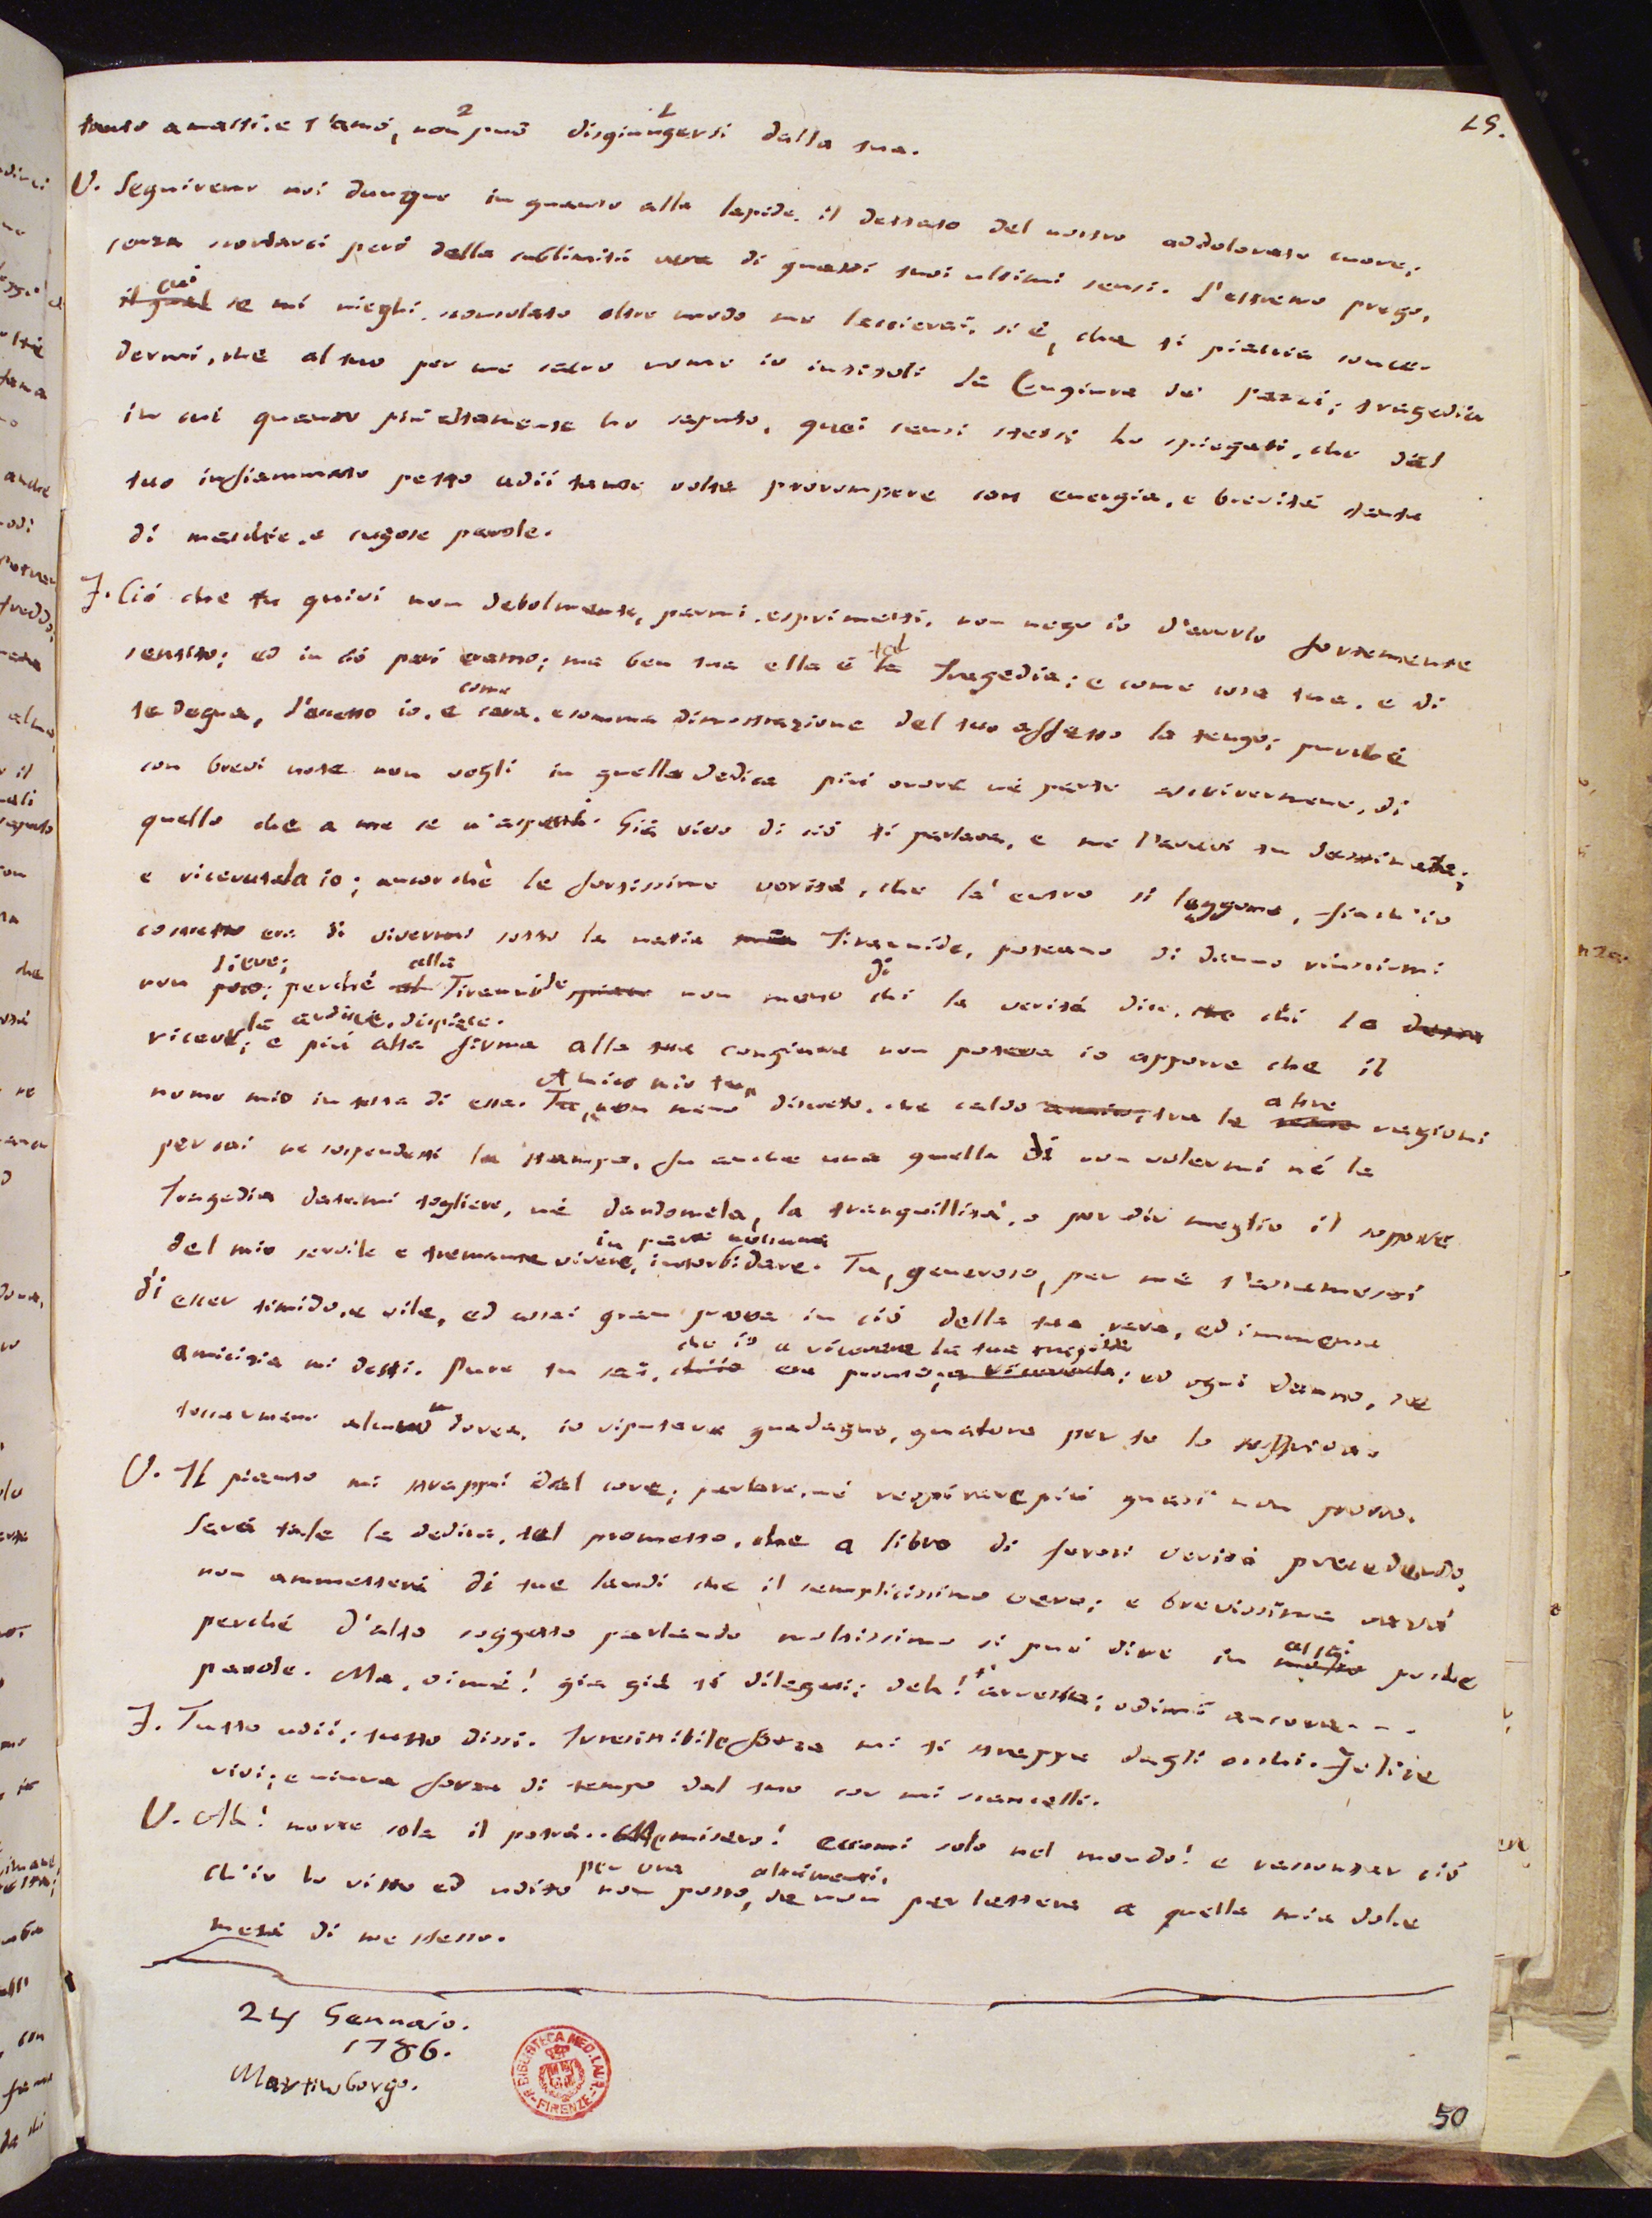 19.
tanto amasti, e t'amò, non può disgiungersi dalla tua.
V. Seguiremo noi dunque in quanto alla lapide, il dettato del nostro addolorato cuore;
senza scordarci però della sublimità vera di questi tuoi ultimi sensi. L'estremo prego,
il qual cui se mi nieghi, sconsolato oltre modo me lascierai, si è, che ti piaccia conce-
dermi, che al tuo per me sacro nome io intitoli la Congiura de' Pazzi; tragedia
in cui quanto più altamente ho saputo, quei sensi stessi ho spiegati, che dal
tuo infiammato petto udii tante volte prorompere con energia, e brevità tanta
di maschie, e sugose parole.
F. Ciò che tu quivi non debolmente, parmi, esprimesti, non nego io d'averlo fortemente
sentito; ed in ciò pari eramo; ma ben tua ella è tal tragedia: e come cosa tua, e di
te degna, l'accetto io, e come cara, e somma dimostrazione del tuo affetto la tengo; purché
con brevi note non vogli in quella dedica più onore né parte ascrivermene, di
quello che a me se n'aspetti. Già vivo di ciò ti parlava, e me l'avevi tu destinata;
e ricevutala io; ancorchè le fortissime verità, che là entro si leggono, finch'io
costretto era di vivermi sotto la natia mia Tirannide, poteano di danno riuscirmi
non poco lieve; perché al alla Tirannide spiace non meno di chi la verità dice, che chi la
riceve la ardisce, dispiace; e più alta firma alla tua congiura non poteva io apporre che il
nome mio in testa di essa. Tu, Amico mio tu, non meno discreto, che caldo amico, tra le altre ragioni
per cui ne sospendesti la stampa, fu anche una quella di non volermi né la
tragedia datami togliere, né dandomela, la tranquillità, o per dir meglio il sopore
del mio servile e tremante vivere, in parte nessuna intorbidare. Tu, generoso, per me t'assumesti
di esser timido, e vile, ed assai gran prova in ciò della tua rara, ed immensa
amicizia mi desti. Pure tu sai, ch'io che io a ricevere la tua tragedia era pronto, a riceverla; ed ogni danno, che
tornarmene alcuno dovea, io riputava guadagno, qualora per te lo soffriva.
V. Il pianto mi strappi dal core; parlare, né respirare più quasi non posso.
Sarà tale la dedica, tel prometto, che a libro di forti verità precedendo,
non ammetterà di tue laudi che il semplicissimo vero; e brevissima sarà
perché d'alto soggetto parlando moltissimo si può dire in molto assai poche
parole. Ma, oimè! già già ti dilegui; deh! t'arresta; odimi ancora - - -
F. Tutto udii; tutto dissi. Irresistibile forza mi ti strappa dagli occhi. Felice
vivi; e niuna forza di tempo dal tuo cor mi scancelli.
V. Ah! morte sola il potrà.. Me misero! eccomi solo nel mondo! e raccontar ciò
ch'io ho visto ed udito per ora non posso, altrimenti, se non per lettera a quella mia dolce
metà di me stesso.
24 Gennajo.
1786.
Martinsborgo.
R. BIBLIOTECA MED. LAUR. FIRENZE
50